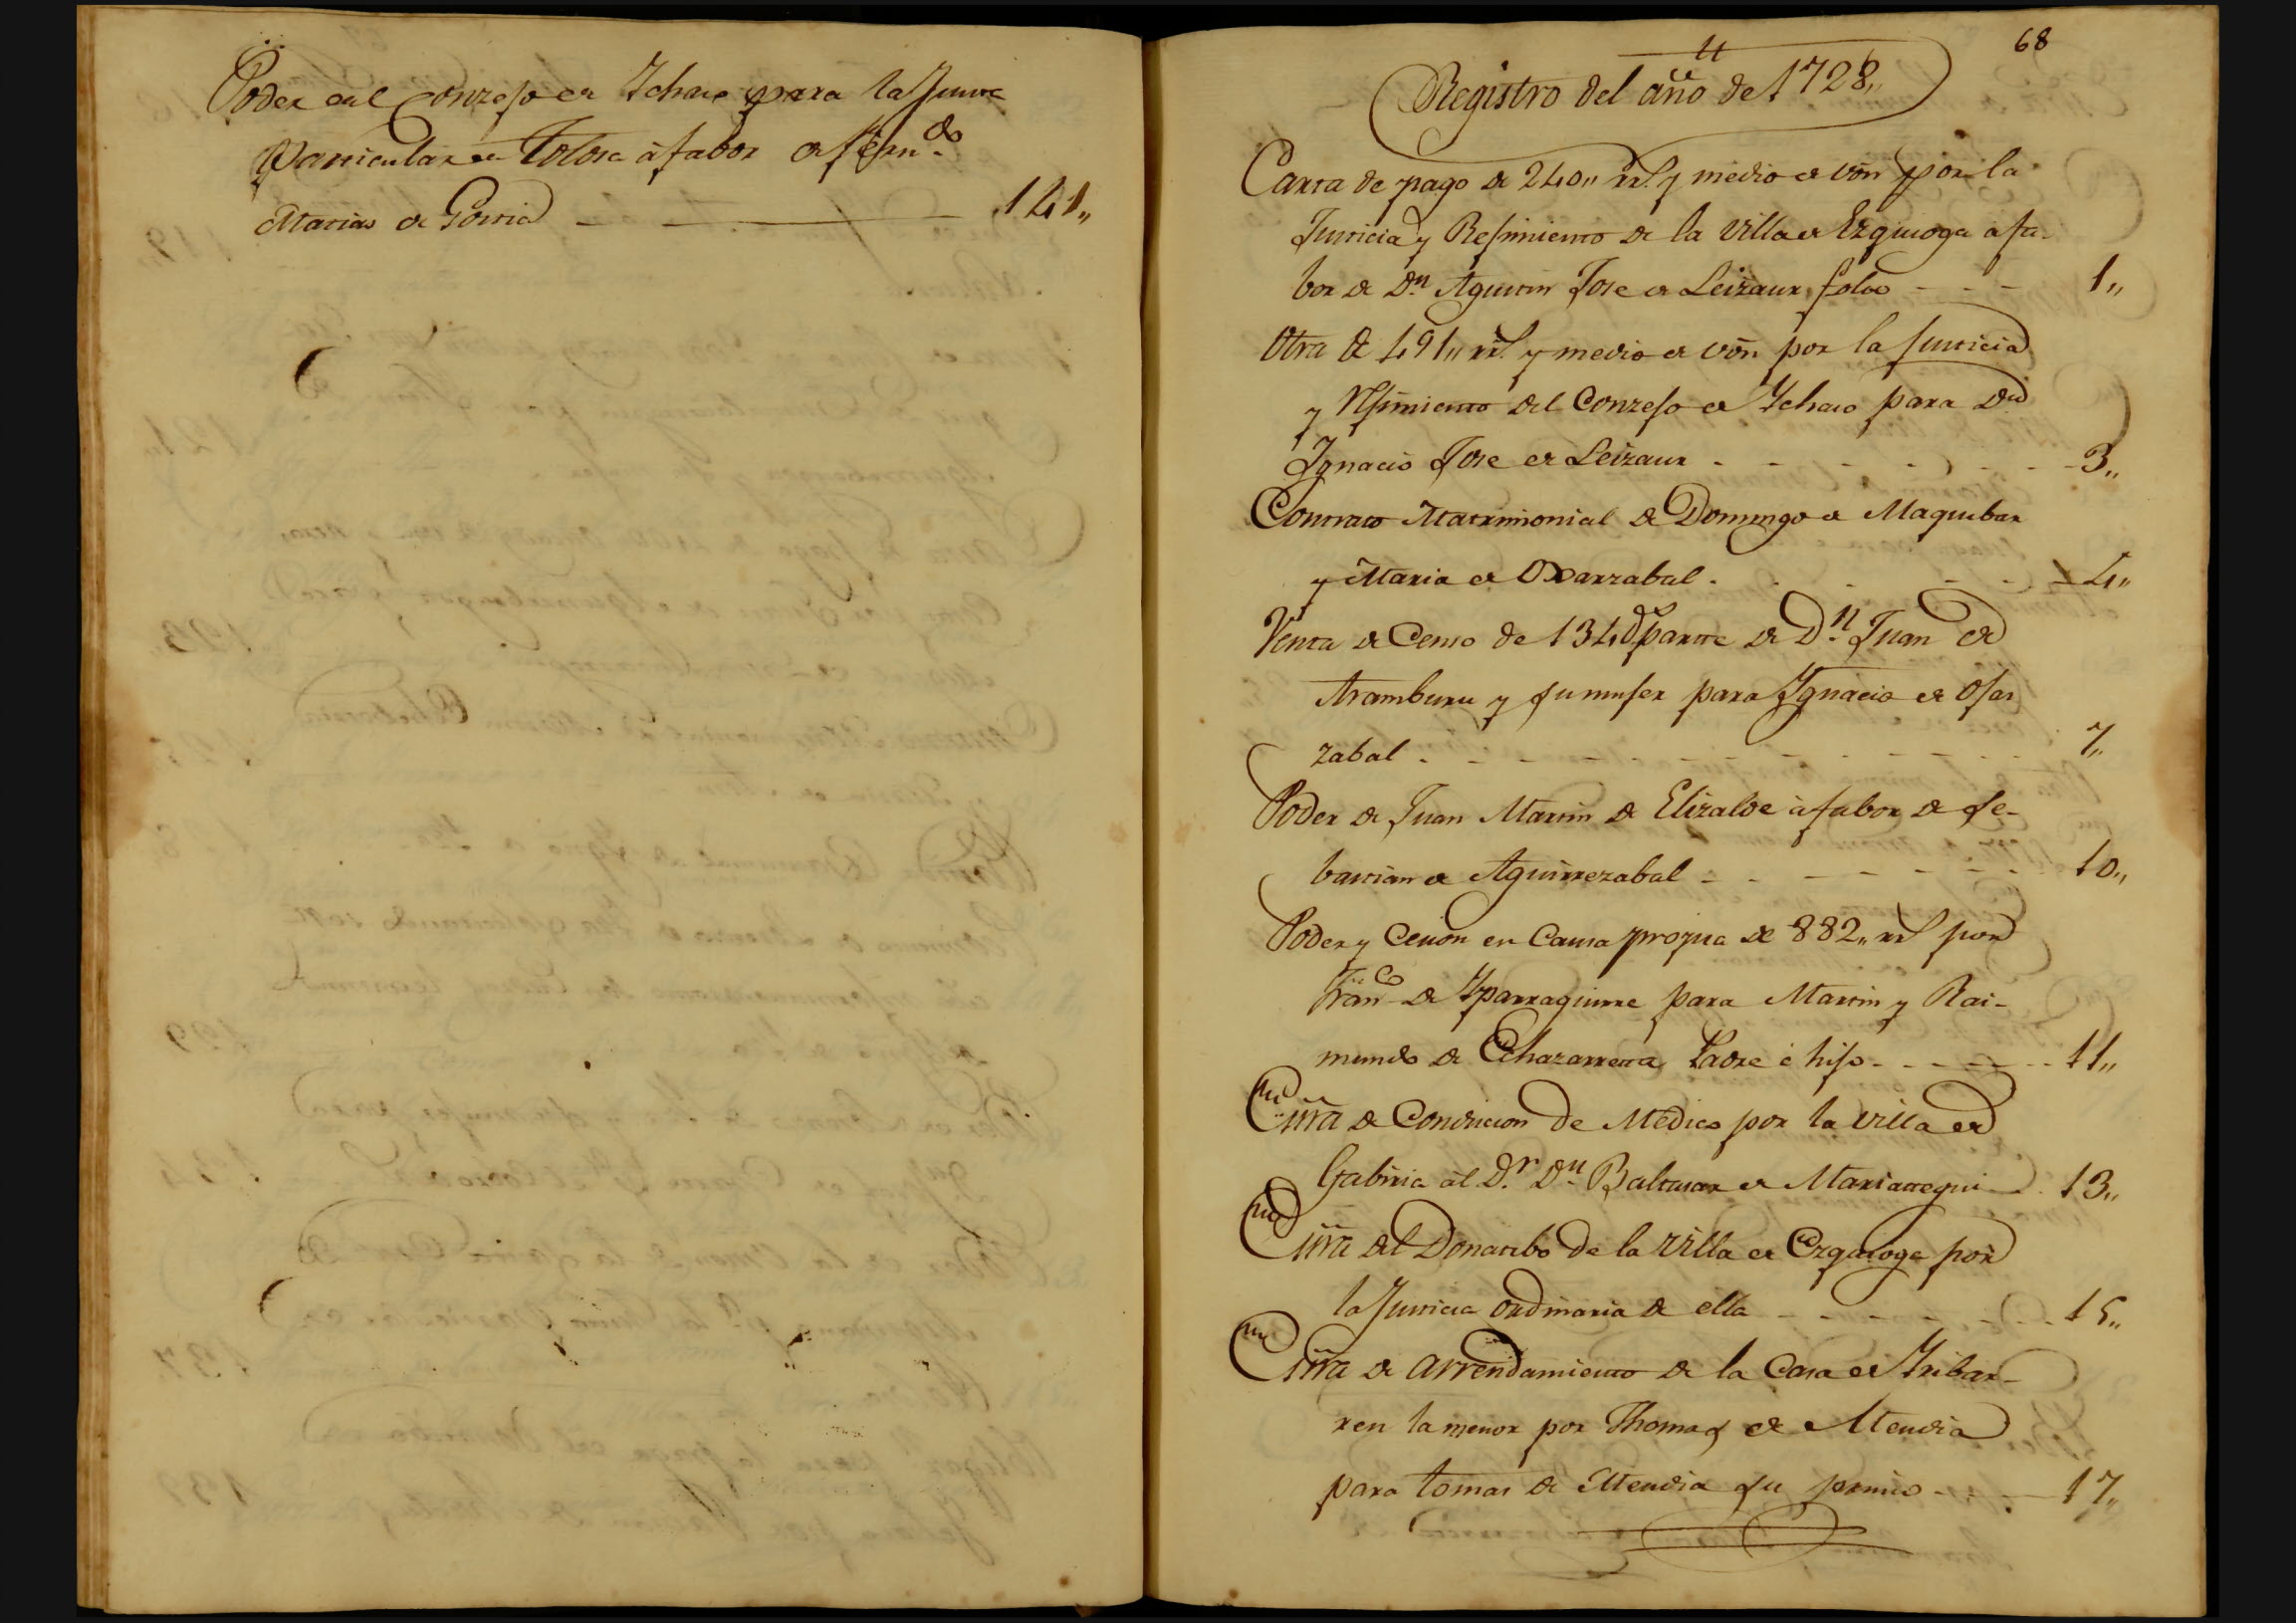 Poder del Conzejo de Ychaso para la Junta
Particular de Tolosa à fabor de fern.do
Matias de Gorria 141,,
68
Registro del año de 1728,,
Carta de pago de 240,, rr.s y medio de von por la
Justicia y Rejimiento de la Villa de Ezquioga a fa-
bor de D.n Agustin Jose de Leizaur folio 1,,
Otra de 491,, rr.s y medio de von por la Justicia
y Rejimiento del Conzejo de Ychaso para Dn
Ygnacio Jose de Leizaur 3,,
Contrato Matrimonial de Domingo de Maquibar
y Maria de Oxarzabal 4,,
Venta de Censo de 134 d.s parte de D.n Juan de
Aramburu y su mujer para Ygnacio de Ojar
zabal 7,,
Poder de Juan Martin de Elizalde à fabor de Se-
bastian de Aguirrezabal 10,,
Poder y Cesion en Causa propia de 882,, rr.s por
Fran.co de Yparraguirre para Martin y Rai-
mundo de Echazarreta Padre é hijo 11,,
Escritura de Conducion de Medico por la Villa de
Gabiria al D.r D.n Baltasar de Mariategui 13,,
Escritura del Donatibo de la Villa de Ezquioga por
la Justicia ordinaria de ella 15,,
Escritura de arrendamiento de la Casa de Yribar-
ren la menor por Thomas de Mendia
para tomas de Mendia su primo 17,,